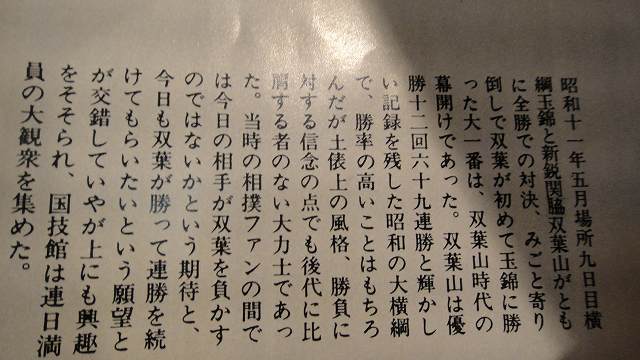 昭和十一年五月場所九日目横
綱玉錦と新鋭関脇双葉山がとも
に全勝での対決、みごと寄り
倒しで双葉が初めて玉錦に勝
った大一番は、双葉山時代の
幕開けであった。双葉山は優
勝十二回六十九連勝と輝かし
い記録を残した昭和の大横綱
で、勝率の高いことはもちろ
んだが土俵上の風格、勝負に
対する信念の点でも後代に比
肩する者のない大力士であっ
た。当時の相撲ファンの間で
は今日の相手が双葉を負かす
のではないかという期待と、
今日も双葉が勝って連勝を続
けてもらいたいという願望と
が交錯していやが上にも興趣
をそそられ、国技館は連日満
員の大観衆を集めた。